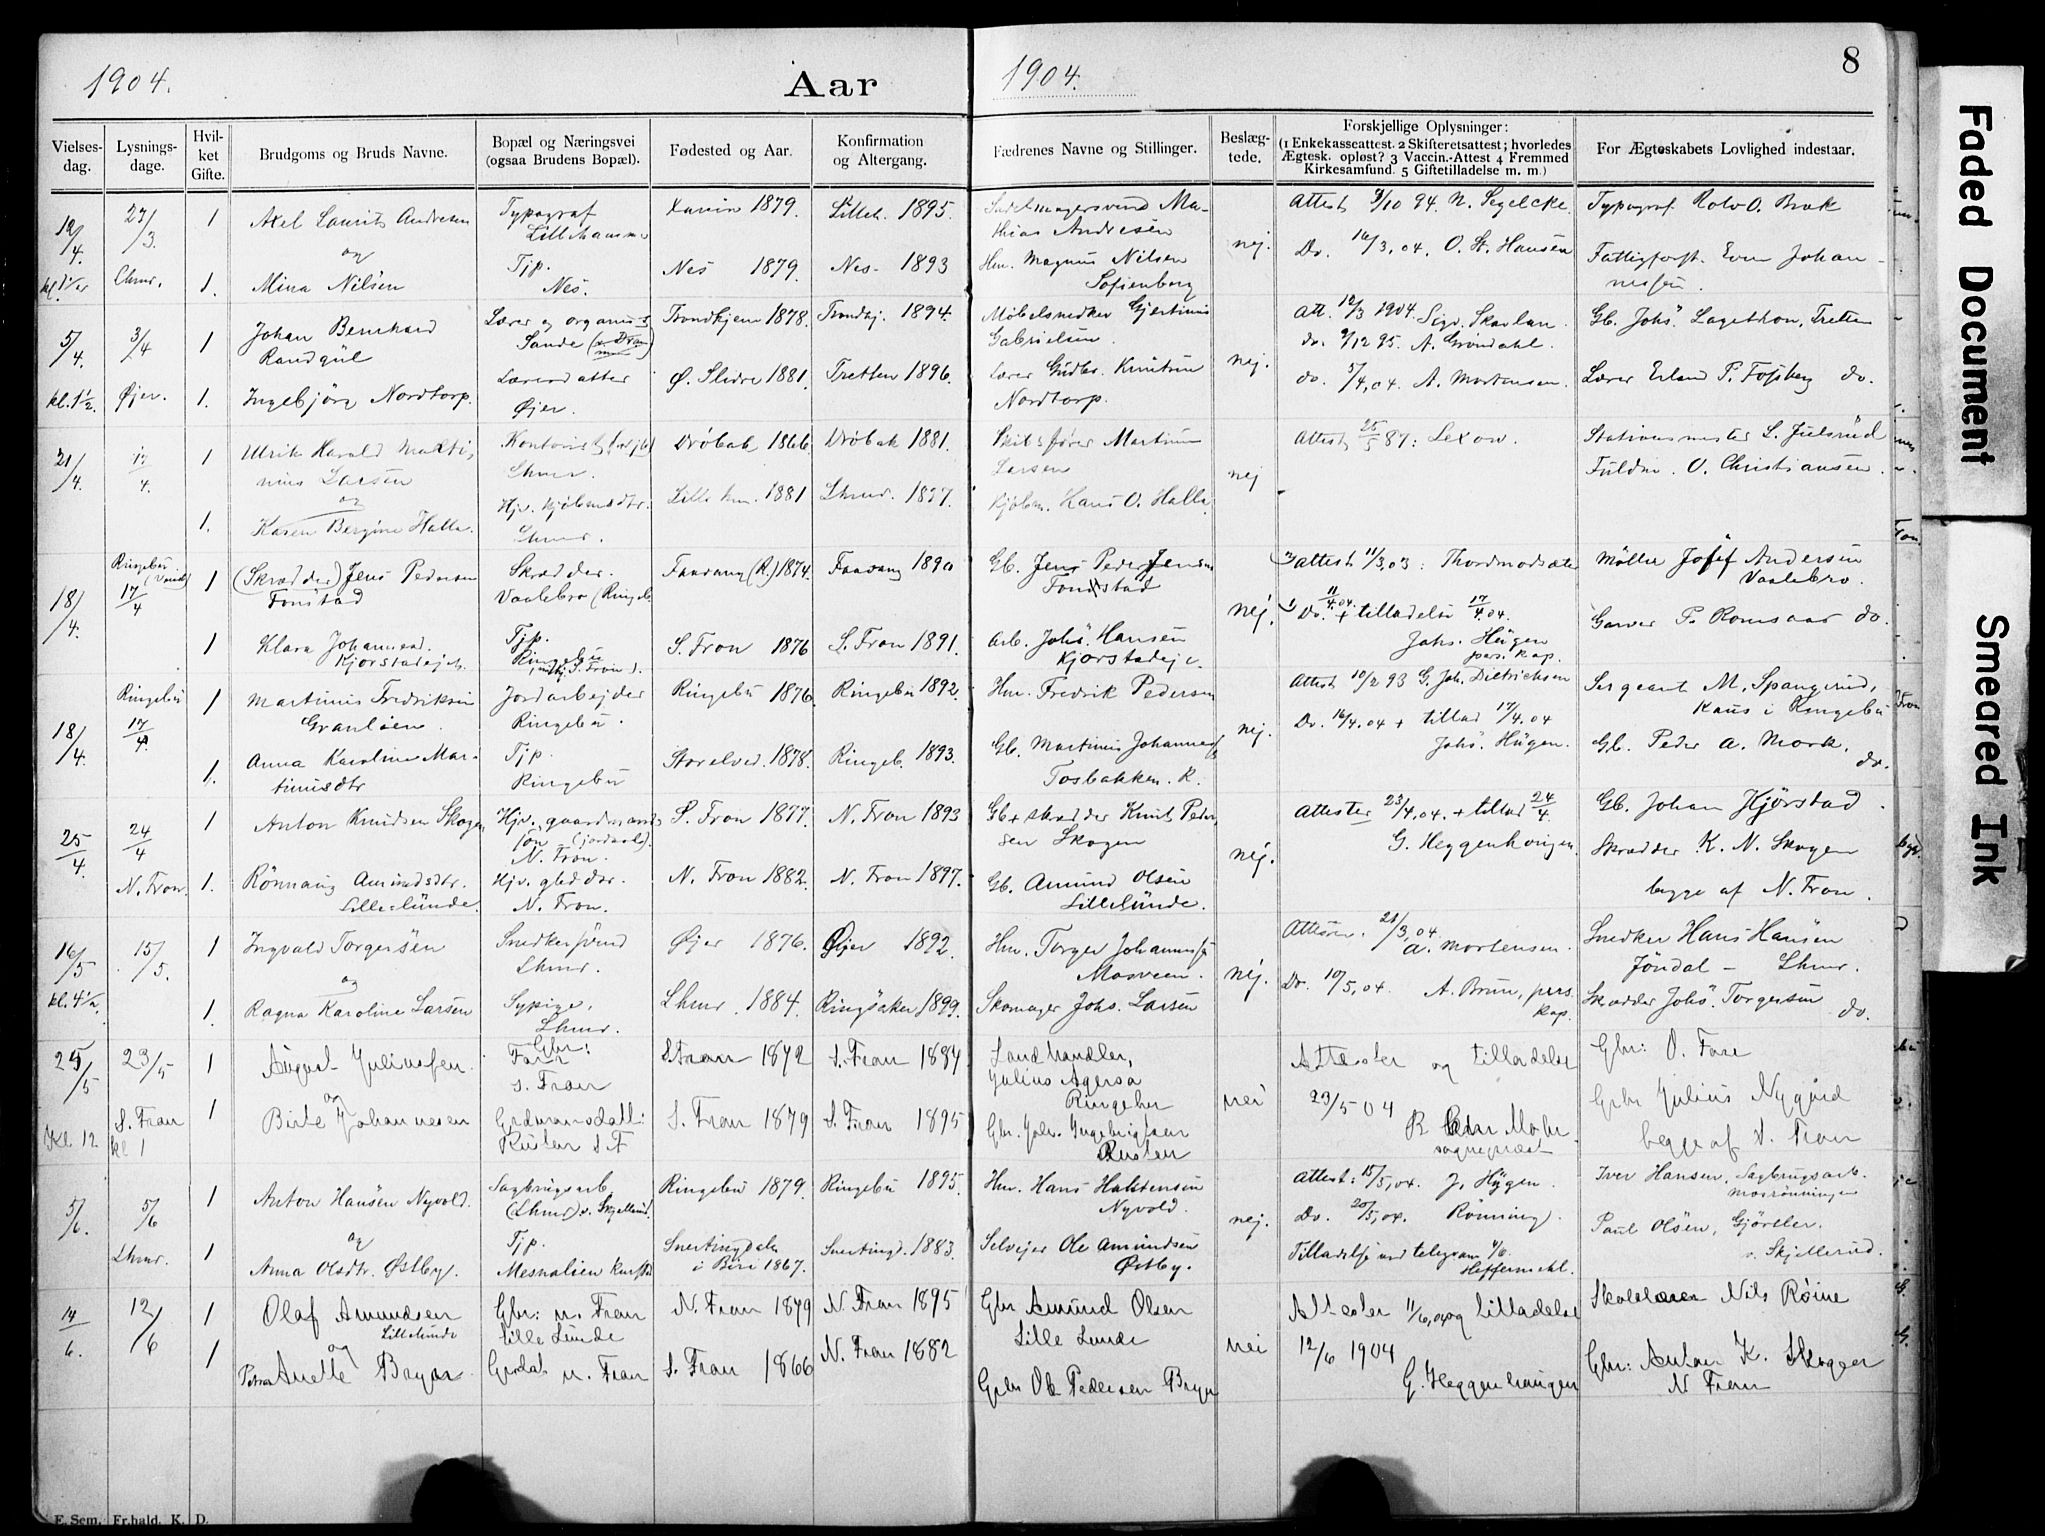 1904.
Aar
1904.
8
Vielses-dag.
Lysnings-dage.
Hvil-ket Gifte.
Brudgoms og Bruds Navne.
Bopæl og Næringsvei (ogsaa Brudens Bopæl).
Fødested og Aar.
Konfirmation og Altergang.
Fædrenes Navne og Stillinger.
Beslæg-tede.
Forskjellige Oplysninger: (1 Enkekasseattest. 2 Skifteretsattest; hvorledes Ægtesk. opløst? 3 Vaccin.-Attest 4 Fremmed Kirkesamfund. 5 Giftetilladelse m. m.)
For Ægteskabets Lovlighed indestaar.
27/3 1 Axel Laurits Andresen Typograf 1879. Lilleh. 1895. Attest 9/10 94. N. Segelcke. Typograf Rolv O. Bræk
/4. Lillehammer Mathias Andresen
og nej. Do. 16/3,04. O. St. Hansen
Lhmr. 1. Mina Nilsen Tjp. Nes 1879. Nes- 1893 Hm. Magnus Nilsen Fattigforst. Even Johan-
Nes. Sofienberg nessen.
5/4. 3/4 1 Johan Bernhard Lærer og organist Trondhjem 1878. Trondhj. 1894. Møbelsnedker Gjertinius Att. 12/3 1904. Sigv. Skavlan. Gb. Johs. Lagethon, Tretten
Randgul Sande (v. Drammen) Gabrielsen. do. 9/12 95. A. Grøndahl.
kl. 1 1/2. Øjer. 1. Ingebjörg Nordtorp. Lærerdatter Ø. Slidre 1881. Tretten 1896. Lærer Gudbr. Knutsen nej. do. 5/4,04. A. Mortensen. Lærer Erland P. Fossberg do.
Øjer. Nordtorp.
21/4. 17/4. 1 Ulrik Harald Marti- Kontorist Drøbak 1866. Drøbak 1881. Skibsfører Martinius Attest 25/5 87: Lexow. Stationsmester L. Julsrud
nius Larsen Lhmr. Larsen nej Fuldm. O. Christiansen.
og
1. Karen Bergine Halle. Hjv. kjøbmdtr. Lilleham. 1881 Lhmr. 1897. Kjøbm. Hans O. Halle.
Lhmr.
18/4. Ringebu 17/4 1 (Skrædder) Jens Pedersen Skrædder. Faavang (R.) 1874. Faavang 1890 Gb. Jens Peder Jensen Attest 11/3,03: Thordmodsæter Møller Josef Andersen
Fonstad Vaalebro (Ringeb. Fonstad Vaalebro.
nej. Do. 11/4.04. + tilladelse 17/4.04. Garver P. Romsaas do.
1 Klara Johannesd. Tjp. S. Fron 1876 S. Fron 1891. Arb. Johs. Hansen Johs. Hügen
Kjorstadejet. Ringebu Kjorstadeje. pers. kap.
Ringebu 1 Martinus Fredriksen Jordarbejder Ringebu 1876. Ringebu 1892. Hm. Fredrik Pedersen Attest 10/2 93 G. Joh. Dietrichsen Sergeant M. Spangrud,
18/4. 17/4. Granløen. Ringebu. nej. Do. 16/4.04 + tillad 17/4.04 Kaus i Ringebu
1. Anna Karoline Mar- Tjp. Storelved. 1878. Ringeb. 1893. Gb. Martinus Johannes Johs. Hügen. Gb. Peder A. Mork. do.
tinusdtr Ringebu Tosbakken. R.
25/4 24/4 1 Anton Knudsen Skogen Hjv. gaardmands S. Fron 1877. N. Fron 1893 Gb + skrædder Knut Peder- Attester 23/4,04. + tillad 24/4. Gb. Johan Kjörstad.
søn (jordarb). N. Fron. sen Skogen nej. G. Heggenhougen. Skrædder K. N. Skogen
N. Fron. 1. Rönnaug Amundsdtr. N. Fron 1882. N. Fron 1897. Gb. Amund Olsen begge af N. Fron.
Lillelunde. N. Fron. Lillelunde.
16/5 15/5. 1 Ingvald Torgersen Snedkersvend Øjer 1876. Øjer 1892. Hm. Torger Johannes 21/3,04. A. Mortensen. Snedker Hans Hansen
og Lhmr. Mosveen. nej. Jøndal - Lhmr.
kl. 4 1/2. 1. Ragna Karoline Larsen Sypige. Lhmr. 1884. Ringsaker 1899. Skomager Johs. Larsen Do. 10/5,04. A. Brun, pers. kap. Skrædder Johs. Torgersen do.
Lhmr.
25/5 23/5 1 August Juliussen. Gbr: S. Fron 1872 S. Fron 1884 Landhandler, Attester og tilladelse Gbr: O. Fore
og S. Fron Julius Agersø
Ringebu nei 23/5 04 Gbr Julius Nygård
Kl. 12. S. Fron kl 1 1 Birte Johannesen Grdmandsdatt: S. Fron 1879 S. Fron 1895 Gbr. Johs. Ingebrigtsen begge af S. Fron
Rusten S. F Rusten sogneprest
5/6. 5/6 1 Anton Hansen Nyvold. Sagbrugsarb. Ringebu 1879. Ringebu 1895. Hm. Hans Halstensen Attest: 15/5,04. J. Hügen. Iver Hansen, Sagbrugsarb.
og (Lhmr) v. Skjellerud. Nyvold. nej. Do. 20/5,04. Rønning. Mosrønningen
Paul Olsen, Gjørtler.
Lhmr. 1 Anna Olsdtr. Østby. Tjp. Snertingdalen Snertingd. 1883. Selvejer Ole Amundsen Tilladelse ved telegram 4/6. v. Skjellerud.
Mesnalien i Biri 1867. Østby. Heffermehl.
14/6. 12/6 1 Olaf Amundsen Gbr: N. Fron N. Fron 1879 N. Fron 1895 Gbr Amund Olsen Attester 11/6,04 og tilladelse Skolelærer Nils Røine
Lillelunde Lille Lunde Lille Lunde nei 12/6 1904
og
1 Petra Anette Bryn Grdat N. Fron S. Fron 1866 N. Fron 1882 Grbr Ole Pedersen Bryn G. Heggenhaugen Gbr: Anton K. Skogen
N Fron
F. Sem. Fr.hald. K. D.
Faded Document
Smeared Ink